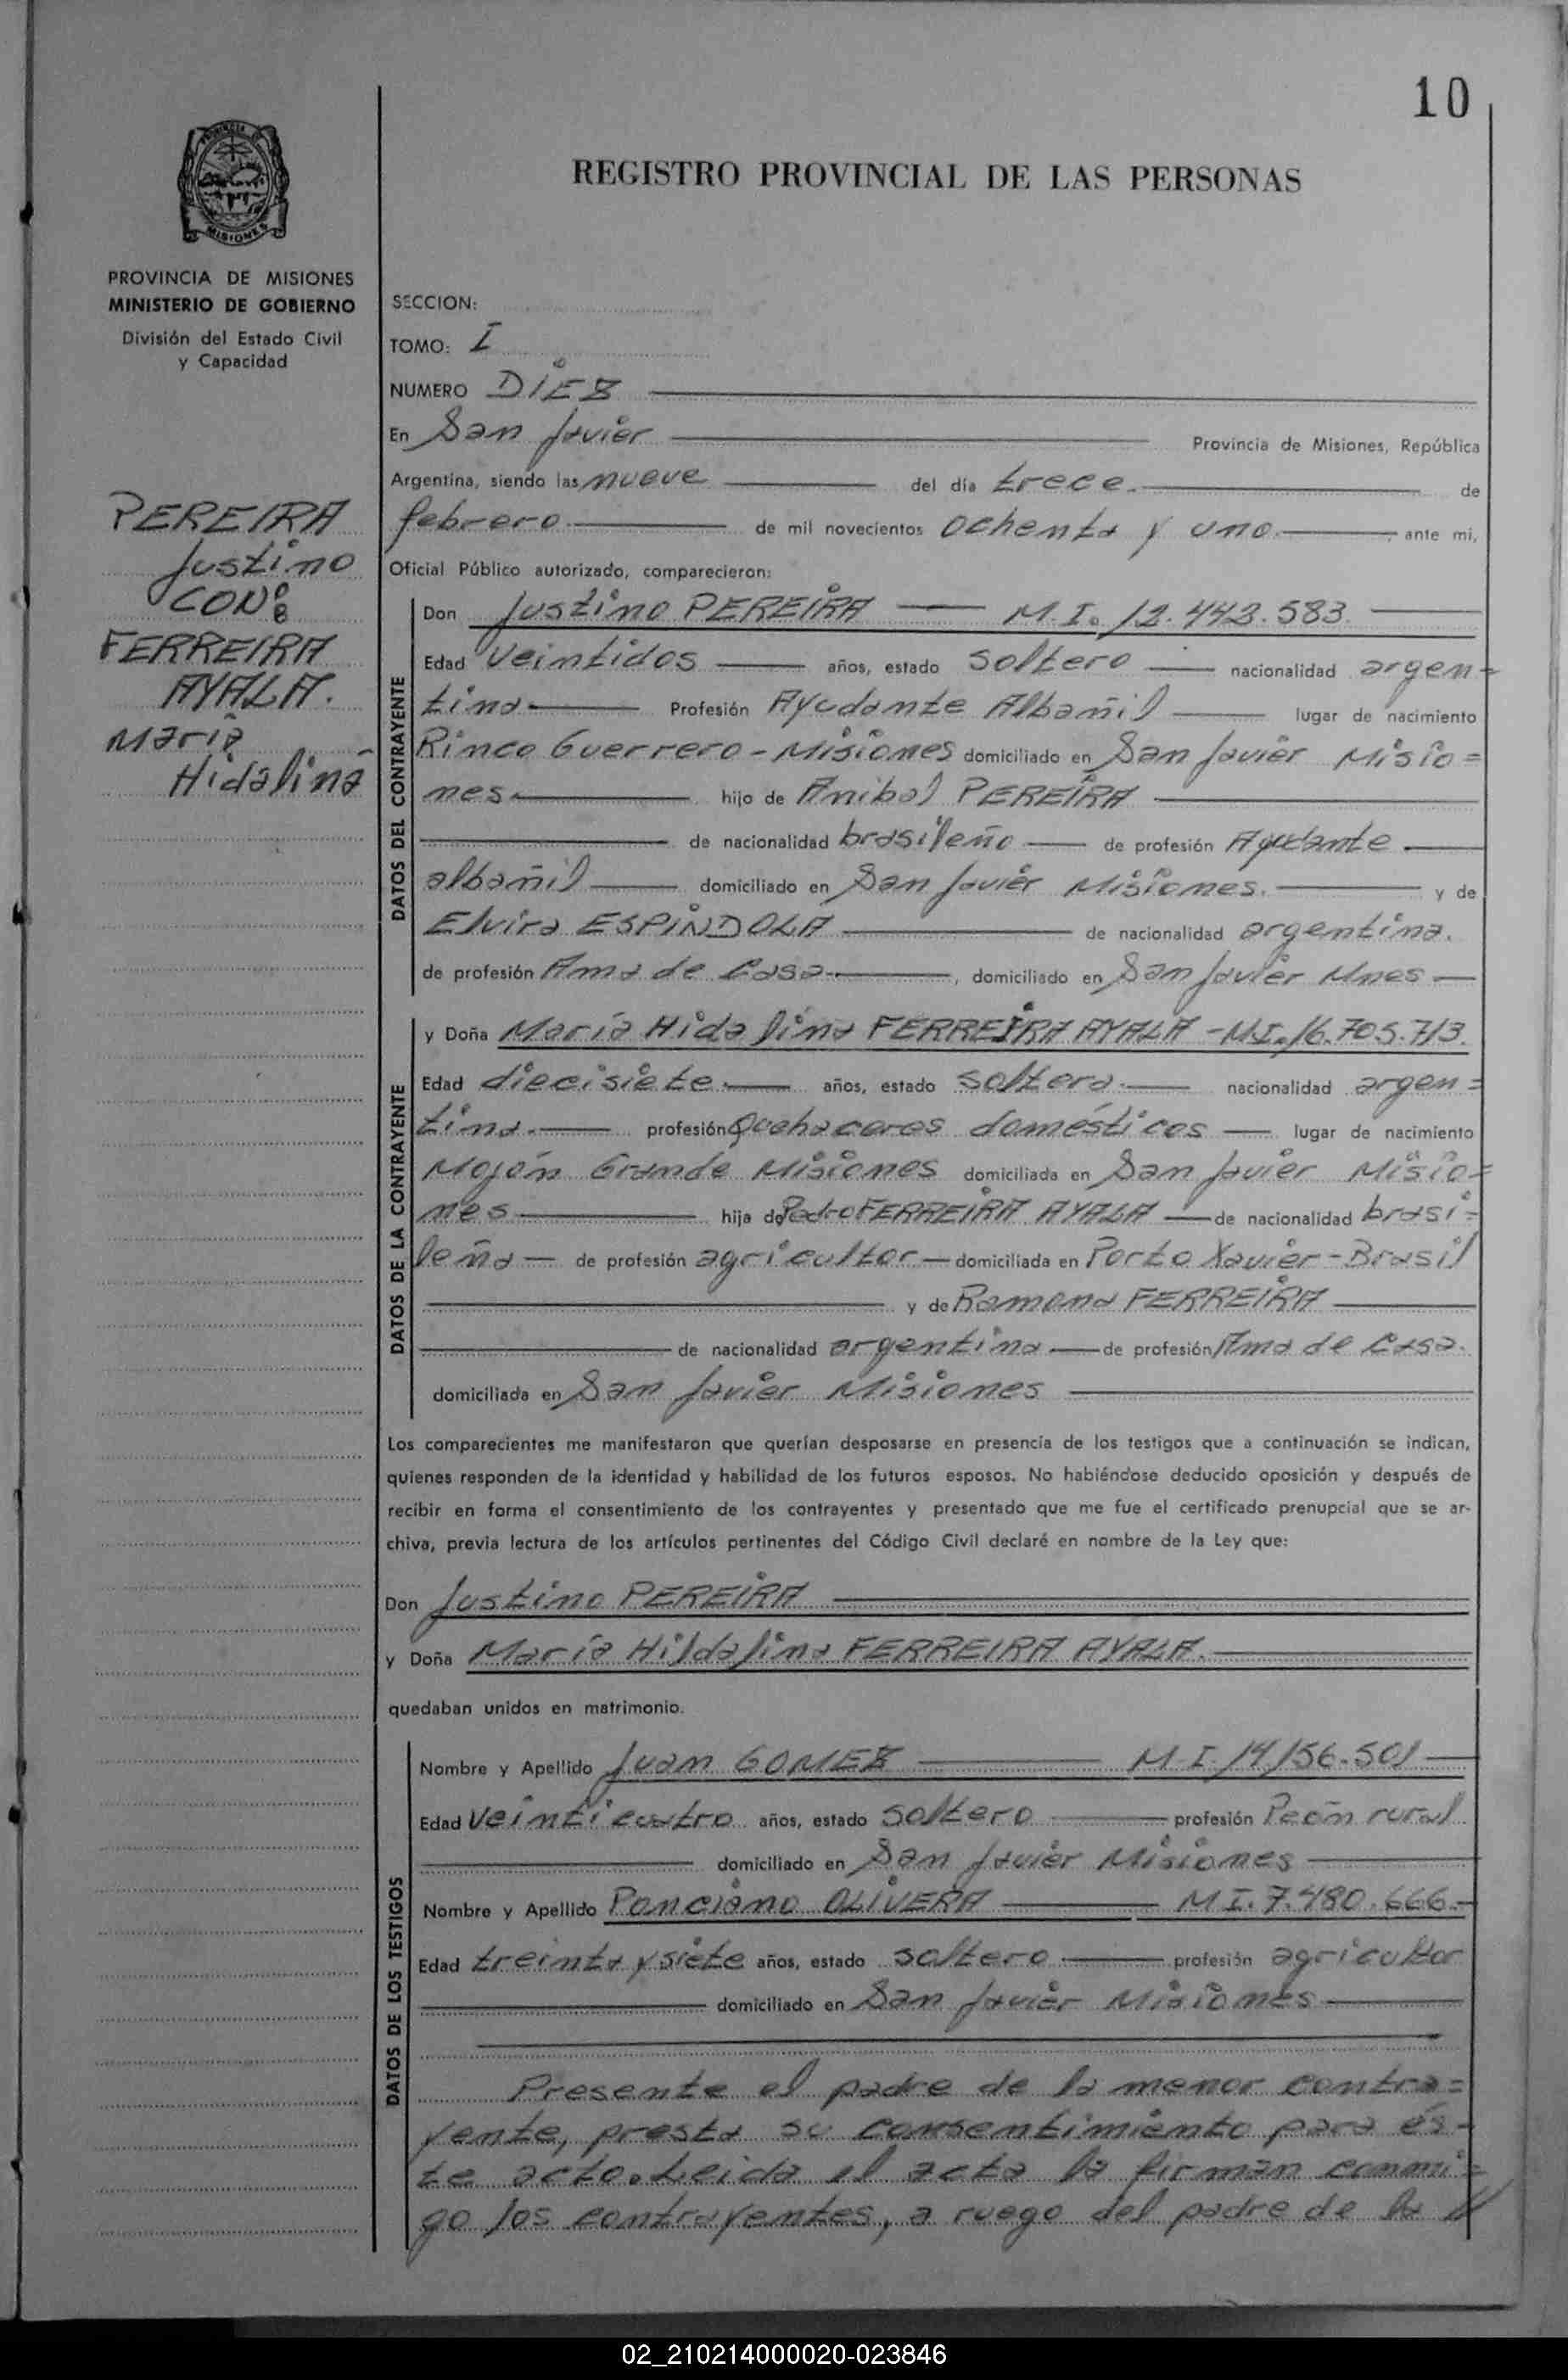 10
REGISTRO PROVINCIAL DE LAS PERSONAS
MISIONES
PROVINCIA DE MISIONES
MINISTERIO DE GOBIERNO
División del Estado Civil
y Capacidad
PEREIRA
Justino
CON:
FERREIRA
AYALA.
Maria
Hidalina
SECCION:
TOMO: I
NUMERO DIEZ
En San Javier Provincia de Misiones, República
Argentina, siendo las nueve del día trece. de
febrero. de mil novecientos ochenta y uno. ante mi,
Oficial Público autorizado, comparecieron:
DATOS DEL CONTRAYENTE
Don Justino PEREIRA M.I. 12.443.583.
Edad veintidos años, estado soltero nacionalidad argen=
tina Profesión Ayudante Albañil lugar de nacimiento
Rinco Guerrero - Misiones domiciliado en San Javier Misio=
nes. hijo de Anibal PEREIRA
de nacionalidad brasileño de profesión Ayudante
albañil domiciliado en San Javier Misiones. y de
Elvira ESPINDOLA de nacionalidad argentina.
de profesión Ama de Casa, domiciliado en San Javier Mnes
DATOS DE LA CONTRAYENTE
y Doña María Hidalina FERREIRA AYALA - M.I. 16.705.713.
Edad diecisiete años, estado soltera. nacionalidad argen=
tina. profesión Quehaceres domésticos lugar de nacimiento
Mojón Grande Misiones domiciliada en San Javier Misio=
nes hija de Pedro FERREIRA AYALA de nacionalidad brasi=
leña de profesión agricultor domiciliada en Porto Xavier - Brasil
y de Ramona FERREIRA
de nacionalidad argentina de profesión Ama de Casa.
domiciliada en San Javier Misiones
Los comparecientes me manifestaron que querían desposarse en presencia de los testigos que a continuación se indican,
quienes responden de la identidad y habilidad de los futuros esposos. No habiéndose deducido oposición y después de
recibir en forma el consentimiento de los contrayentes y presentado que me fue el certificado prenupcial que se ar-
chiva, previa lectura de los artículos pertinentes del Código Civil declaré en nombre de la Ley que:
Don Justino PEREIRA
y Doña María Hildalina FERREIRA AYALA.
quedaban unidos en matrimonio.
DATOS DE LOS TESTIGOS
Nombre y Apellido Juan GOMEZ M.I. 14.156.501
Edad veinticuatro años, estado soltero profesión Peón rural
domiciliado en San Javier Misiones
Nombre y Apellido Ponciano OLIVERA M.I. 7.480.666.
Edad treinta y siete años, estado soltero profesión agricultor
domiciliado en San Javier Misiones
Presente el padre de la menor contra=
yente, presta su consentimiento para és-
te acto. Leida el acta la firman conmi=
go los contrayentes, a ruego del padre de la //
02_210214000020-023846